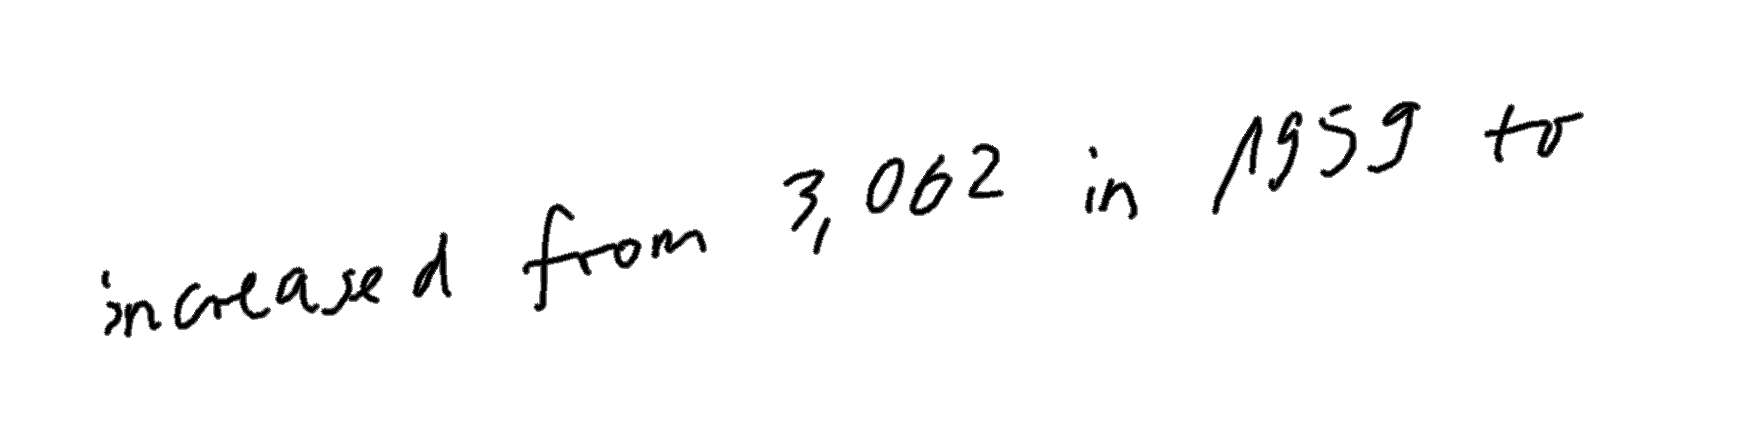 increased from 3,062 in 1959 to